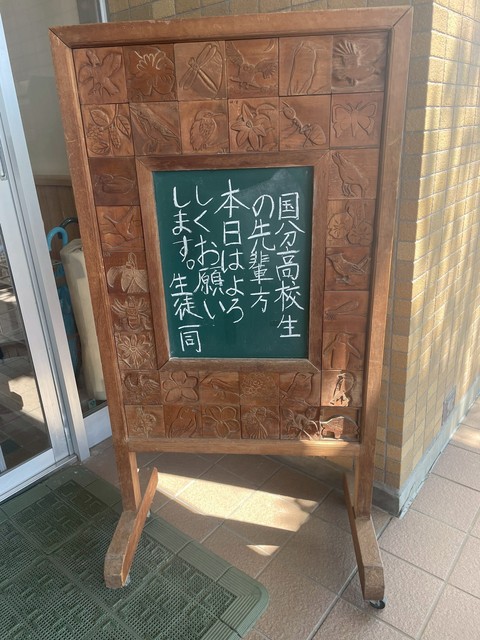 国分高校生
の先輩方
本日はよろ
しくお願い
します。生徒一同